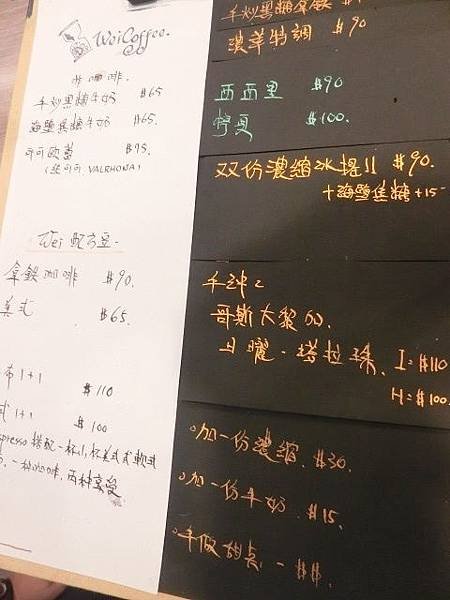 WeiCoffee.
非咖啡.
手炒黑糖牛奶 $65
海鹽焦糖牛奶 $65.
可可歐蕾 $95.
VALRHONA)
Wei 配方豆.
拿鐵咖啡 $90.
美式 $65.
布1+1 $110
式1+1 $100
presso 搭配一杯小杯美式或
一种咖啡,两种享受
手炒黑糖拿鐵
濃萃特調 $90
西西里 $90
$100.
双份濃縮冰提!! $90.
+海鹽焦糖+15-
手沖:
哥斯大黎加.
日曜.塔拉珠. I=$110
H=$100.
。加一份濃縮.$30.
。加一份牛奶.$15.
。手做甜点.-$$.